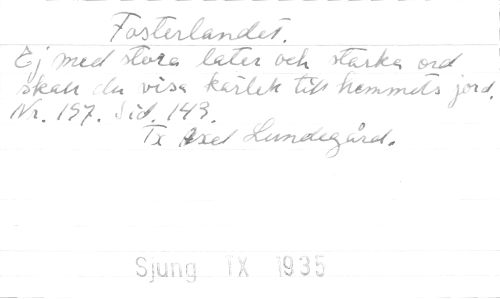 Fosterlandet.
Ej med stora later och starka ord
skall du visa kärlek till hemmets jord.
Nr. 157. Sid. 143.
Tx Axel Lundegård.
Sjung IX 1935